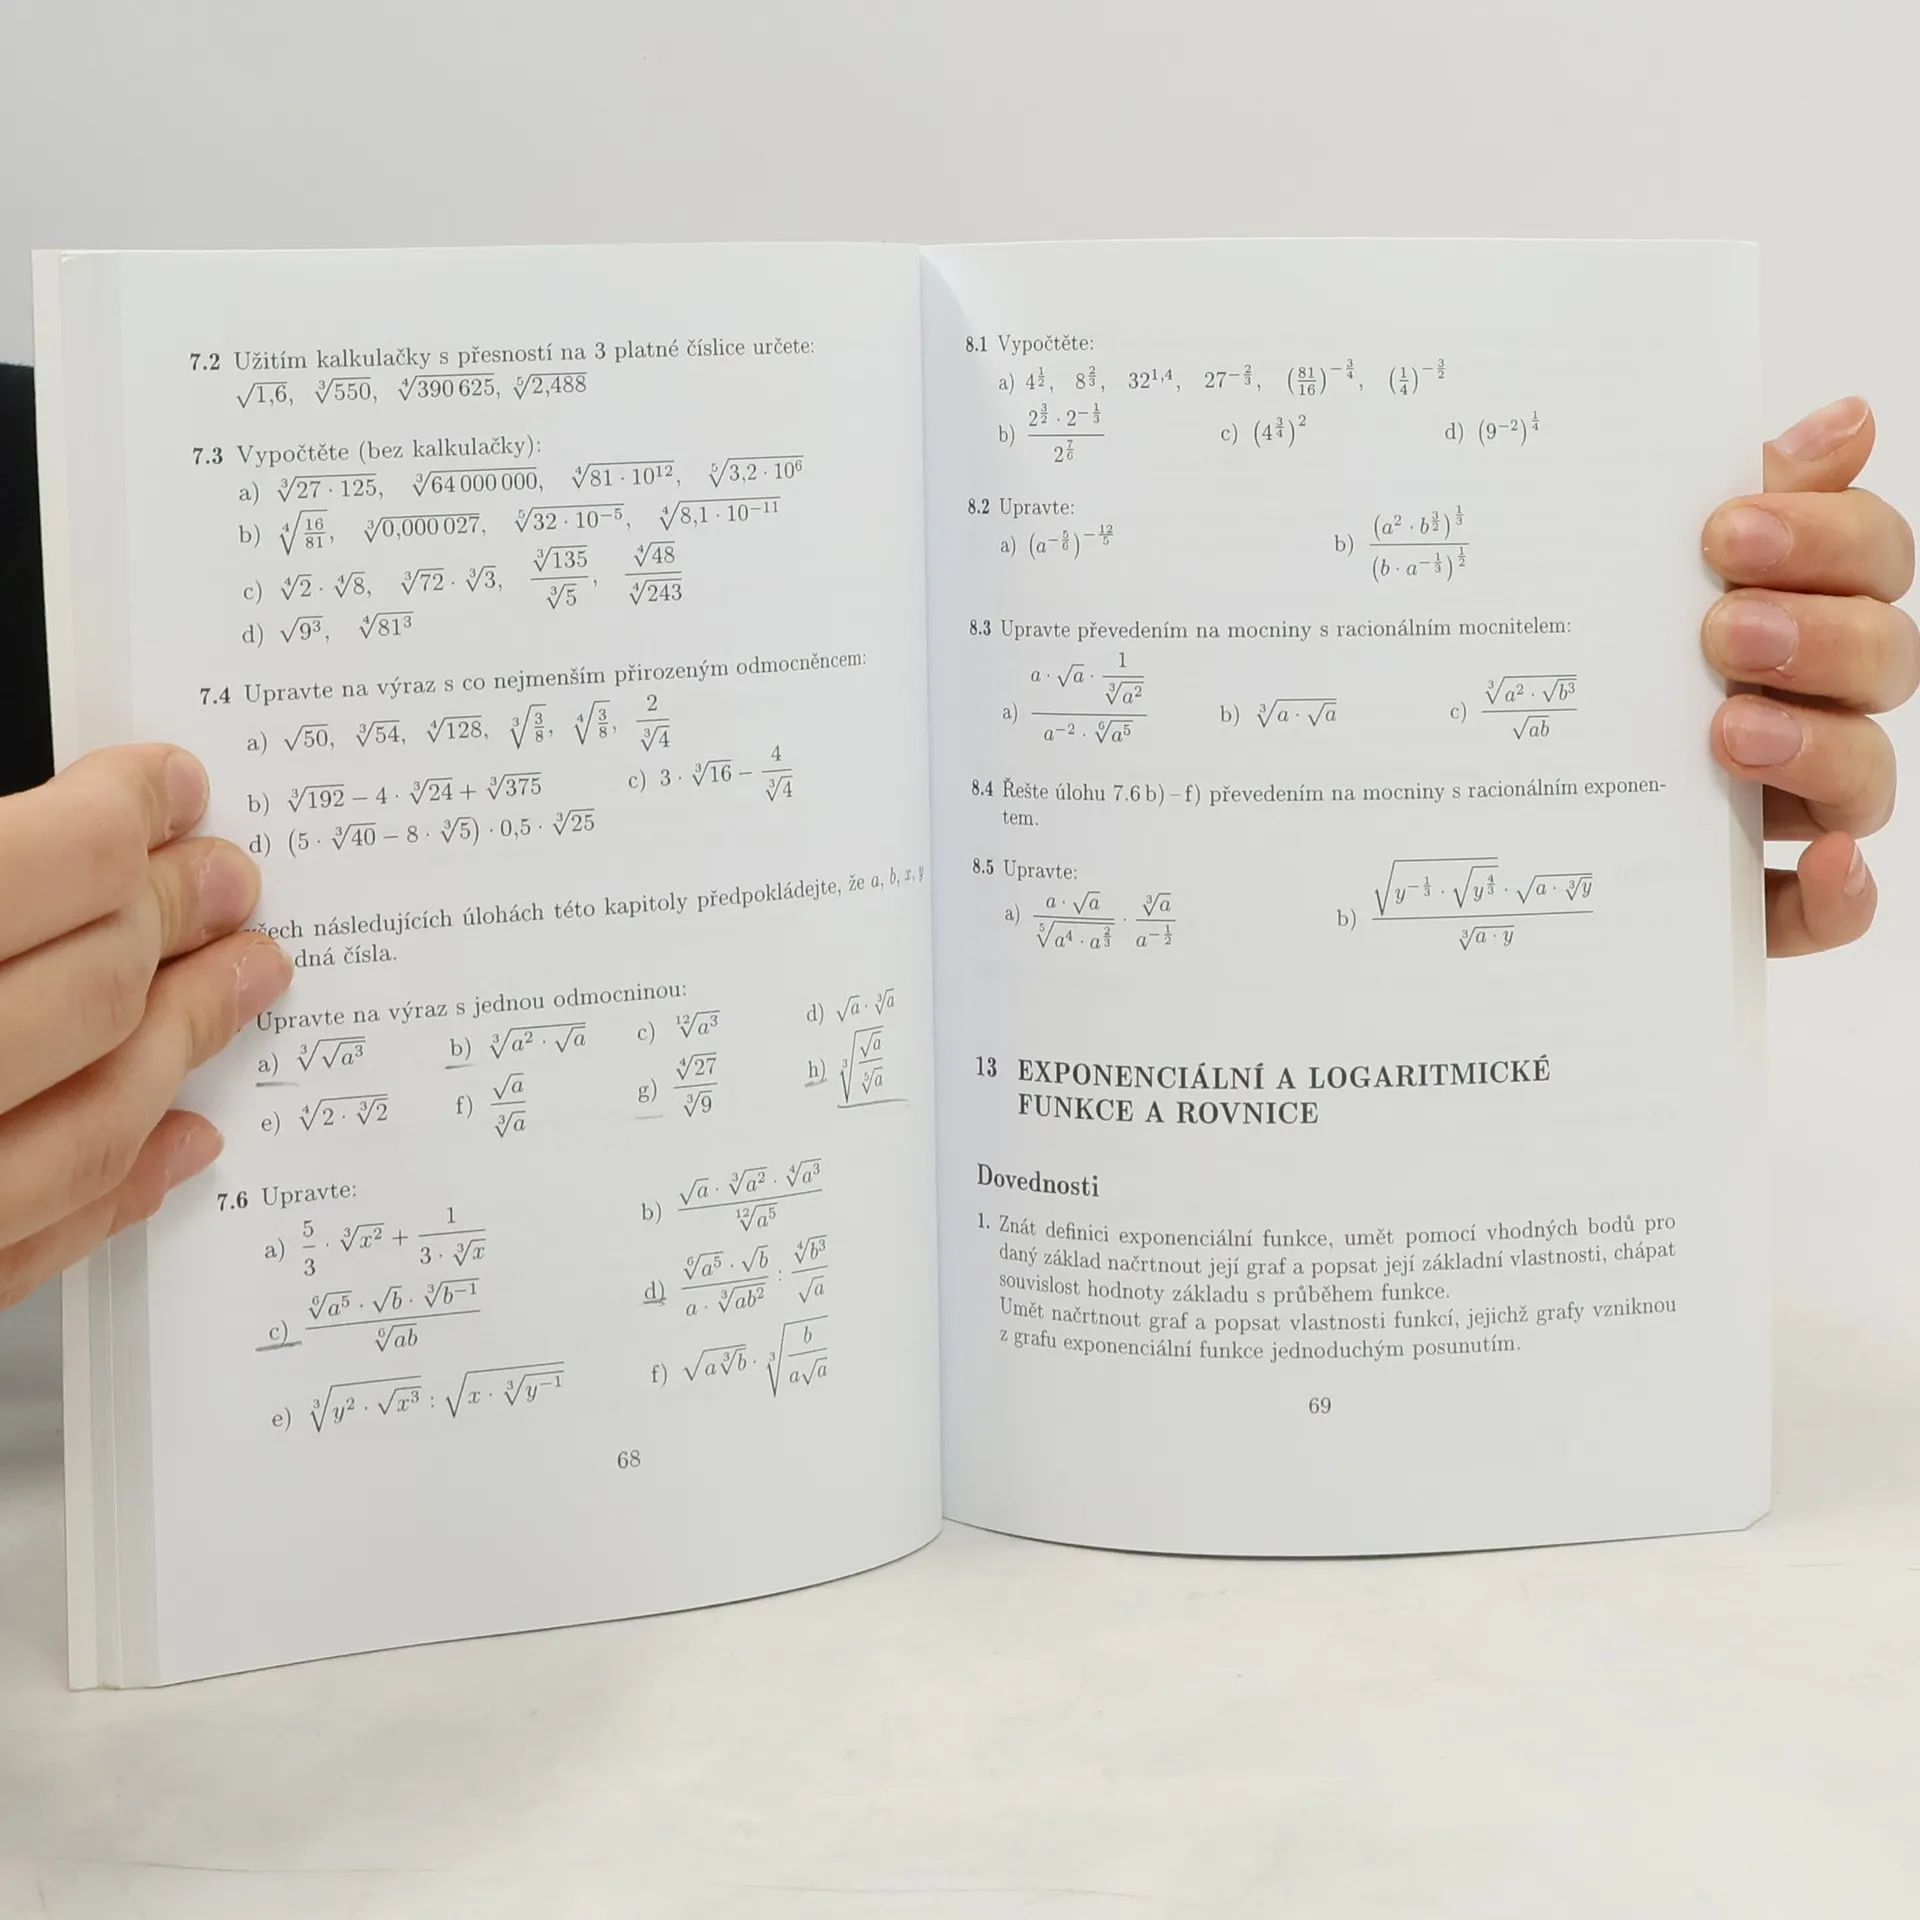 7.2 Užitím kalkulačky s přesností na 3 platné číslice určete:
√1,6, ∛550, ∜390 625, ⁵√2,488
7.3 Vypočtěte (bez kalkulačky):
a) ∛(27 · 125), ∛64 000 000, ∜(81 · 10¹²), ⁵√(3,2 · 10⁶)
b) ∜(16/81), ∛0,000 027, ⁵√(32 · 10⁻⁵), ∜(8,1 · 10⁻¹¹)
c) ∜2 · ∜8, ∛72 · ∛3, ∛135/∛5, ∜48/∜243
d) √9³, ∜81³
7.4 Upravte na výraz s co nejmenším přirozeným odmocněncem:
a) √50, ∛54, ∜128, ∛(3/8), ∜(3/8), 2/∛4
b) ∛192 − 4 · ∛24 + ∛375 c) 3 · ∛16 − 4/∛4
d) (5 · ∛40 − 8 · ∛5) · 0,5 · ∛25
všech následujících úlohách této kapitoly předpokládejte, že a, b, x, y
dná čísla.
Upravte na výraz s jednou odmocninou:
a) ∛(√a³) b) ∛(a² · √a) c) ¹²√a³ d) √a · ∛a
e) ∜(2 · ∛2) f) √a/∛a g) ∜27/∛9 h) ∛(√a/⁵√a)
7.6 Upravte:
a) 5/3 · ∛x² + 1/(3 · ∛x) b) (√a · ∛a² · ∜a³)/¹²√a⁵
c) (⁶√a⁵ · √b · ∛b⁻¹)/⁶√ab d) (⁶√a⁵ · √b)/(a · ∛ab²) : ∜b³/√a
e) ∛(y² · √x³) : √(x · ∛y⁻¹) f) √(a∛b) · ∛(b/(a√a))
68
8.1 Vypočtěte:
a) 4^(1/2), 8^(2/3), 32^(1,4), 27^(−2/3), (81/16)^(−3/4), (1/4)^(−3/2)
b) (2^(3/2) · 2^(−1/3))/2^(7/6) c) (4^(3/4))² d) (9⁻²)^(1/4)
8.2 Upravte:
a) (a^(−5/6))^(−12/5) b) (a² · b^(3/2))^(1/3)/(b · a^(−1/3))^(1/2)
8.3 Upravte převedením na mocniny s racionálním mocnitelem:
a) (a · √a · 1/∛a²)/(a⁻² · ⁶√a⁵) b) ∛(a · √a) c) ∛(a² · √b³)/√ab
8.4 Řešte úlohu 7.6 b) – f) převedením na mocniny s racionálním exponen-
tem.
8.5 Upravte:
a) (a · √a)/⁵√(a⁴ · a^(2/3)) · ∛a/a^(−1/2) b) √(y^(−1/3) · √(y^(4/3)) · √(a · ∛y)/∛(a · y)
13 EXPONENCIÁLNÍ A LOGARITMICKÉ
FUNKCE A ROVNICE
Dovednosti
1. Znát definici exponenciální funkce, umět pomocí vhodných bodů pro
daný základ načrtnout její graf a popsat její základní vlastnosti, chápat
souvislost hodnoty základu s průběhem funkce.
Umět načrtnout graf a popsat vlastnosti funkcí, jejichž grafy vzniknou
z grafu exponenciální funkce jednoduchým posunutím.
69